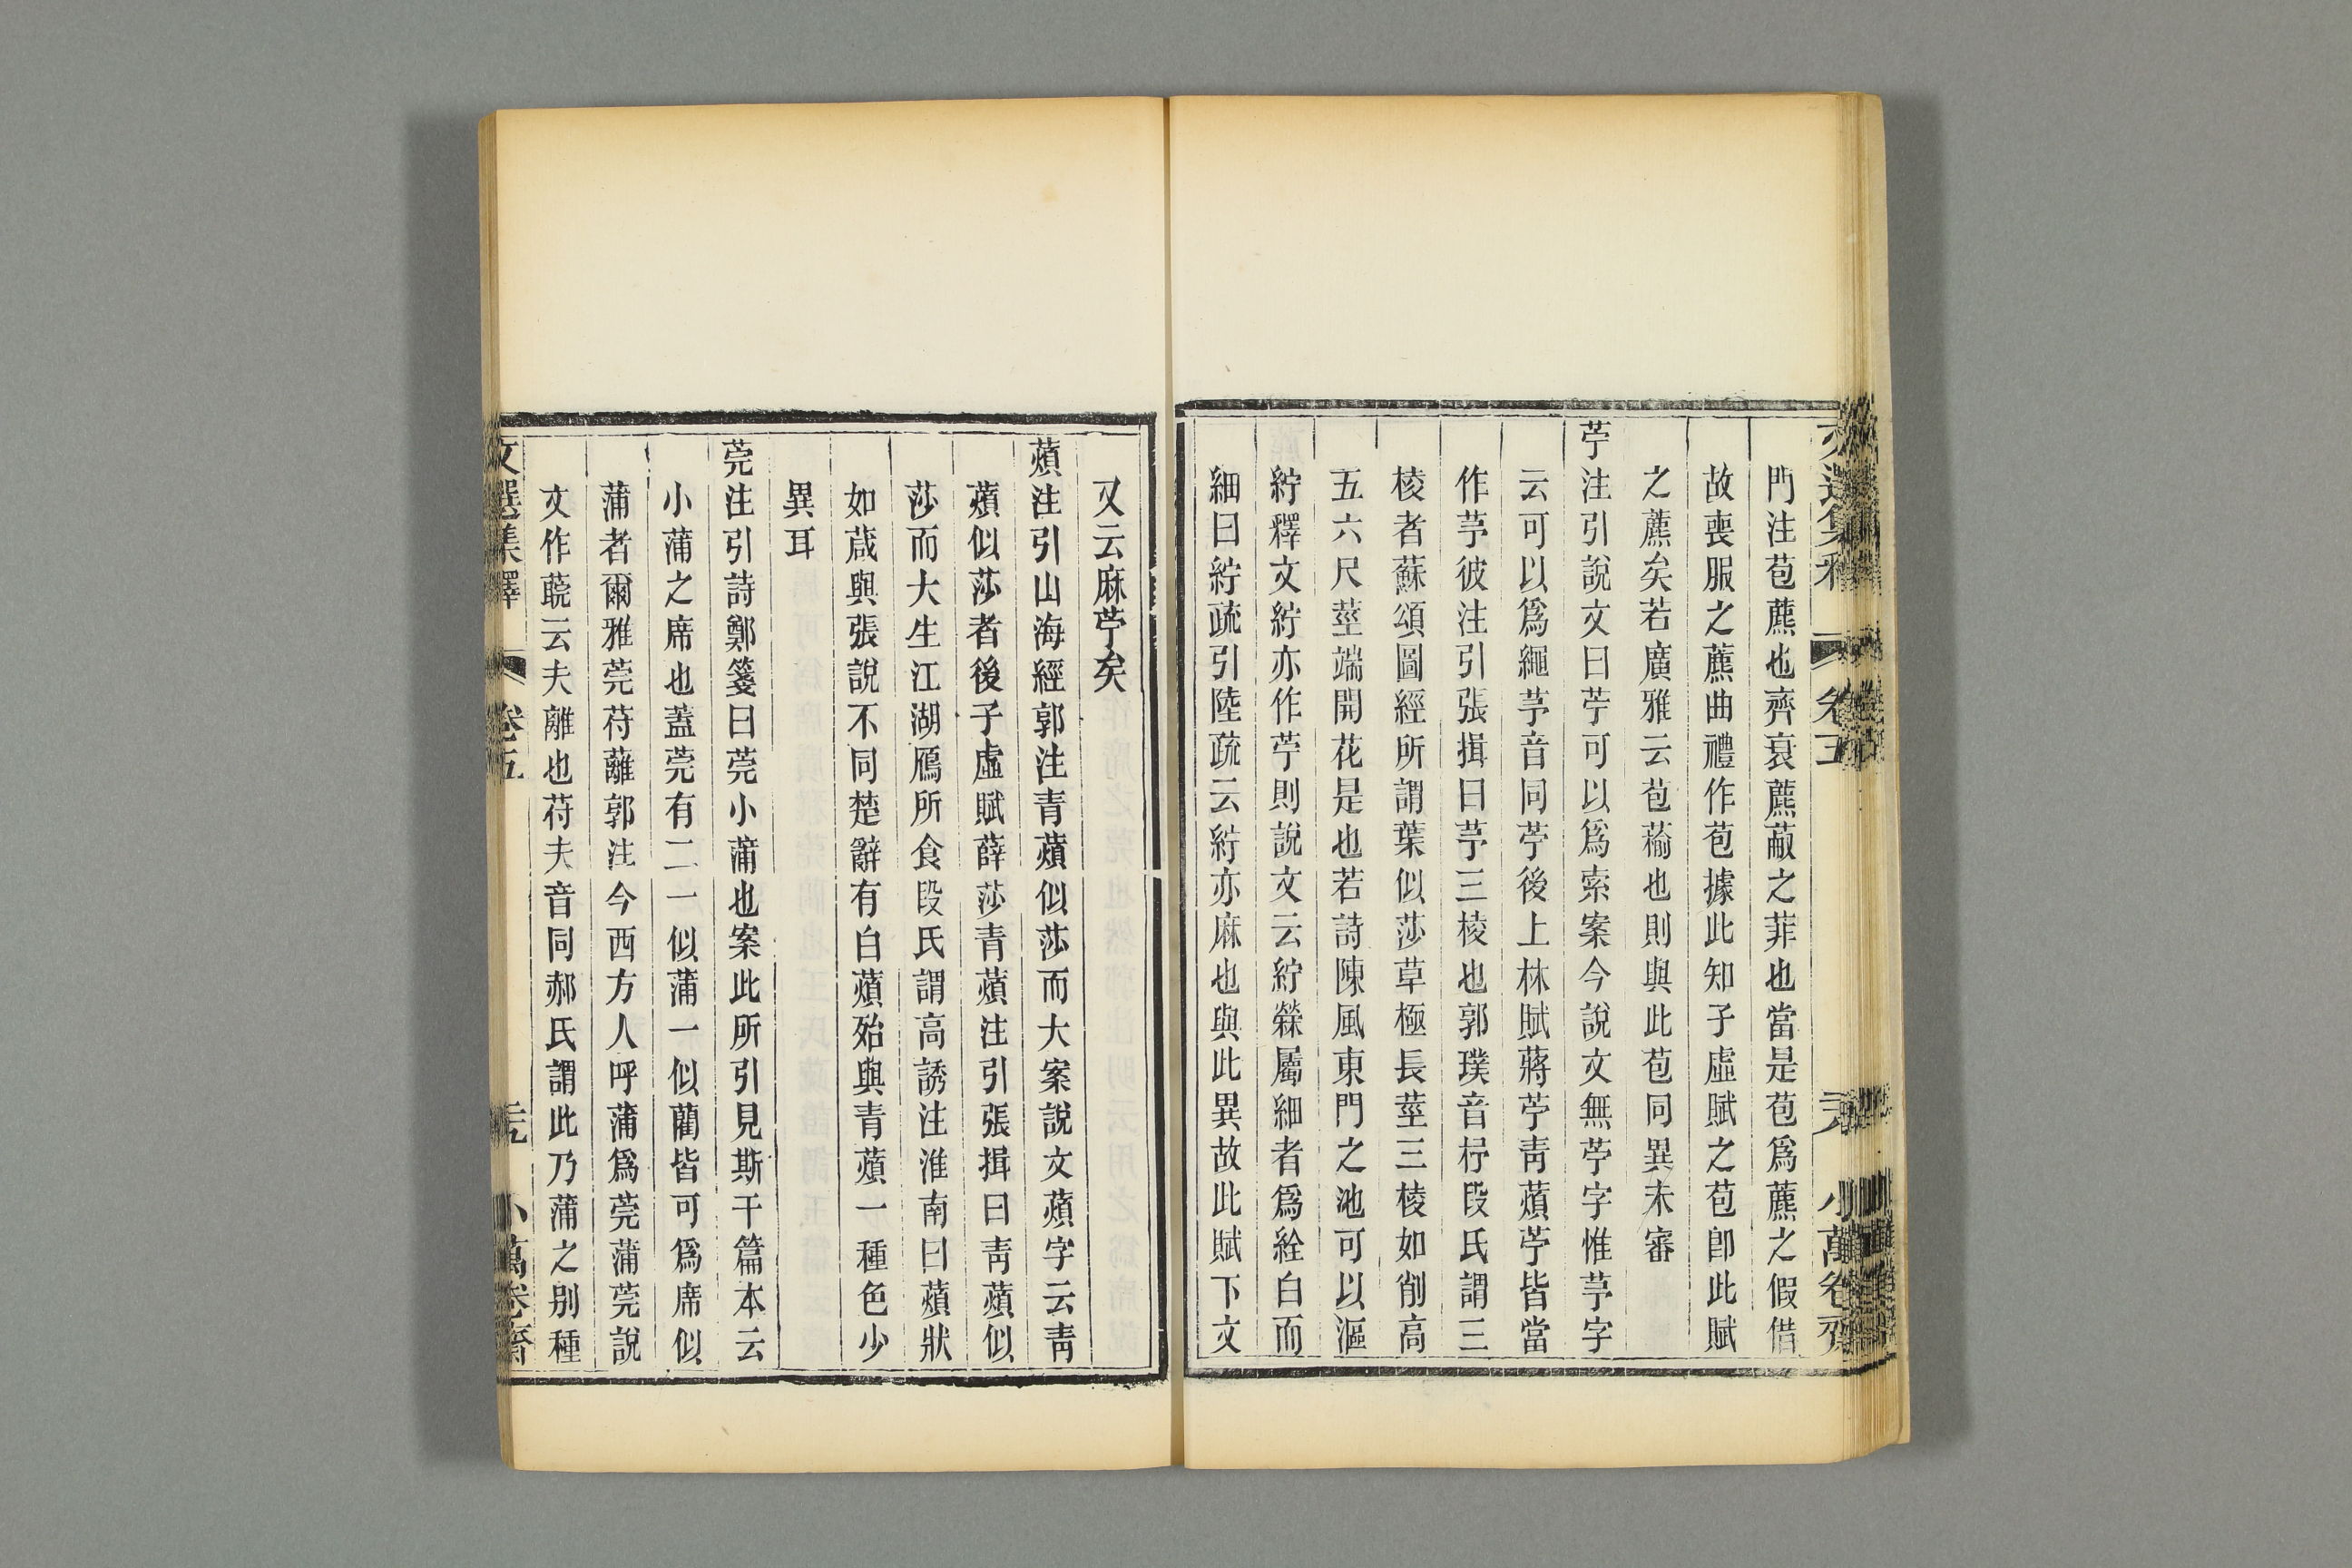 門注苞藨也齊衰藨蔽之菲也當是苞爲藨之假借
故喪服之藨曲禮作苞據此知子虛賦之苞卽此賦
之藨矣若廣雅云苞蕍也則與此苞同異未審
苧注引說文曰苧可以爲索案今說文無苧字惟芧字
云可以爲繩芧音同苧後上林賦蔣苧靑薠苧皆當
作芧彼注引張揖曰芧三棱也郭璞音杼段氏謂三
棱者蘇頌圖經所謂葉似莎草極長莖三棱如削高
五六尺莖端開花是也若詩陳風東門之池可以漚
紵釋文紵亦作苧則說文云紵檾屬細者爲絟白而
細曰紵疏引陸疏云紵亦麻也與此異故此賦下文
又云麻苧矣
薠注引山海經郭注青薠似莎而大案說文薠字云靑
薠似莎者後子虛賦薛莎青薠注引張揖曰靑薠似
莎而大生江湖鴈所食段氏謂高誘注淮南曰薠狀
如葴與張說不同楚辭有白薠殆與青薠一種色少
異耳
莞注引詩鄭箋曰莞小蒲也案此所引見斯干篇本云
小蒲之席也蓋莞有二一似蒲一似藺皆可爲席似
蒲者爾雅莞苻蘺郭注今西方人呼蒲爲莞蒲莞說
文作䓴云夫離也苻夫音同郝氏謂此乃蒲之別種
文選集釋 卷五 二九 小萬卷齋